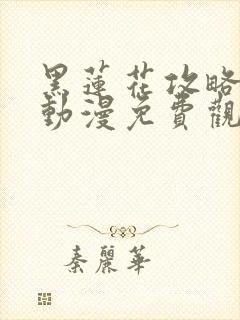 黑蓮花攻略
動漫免費觀
秦麗華